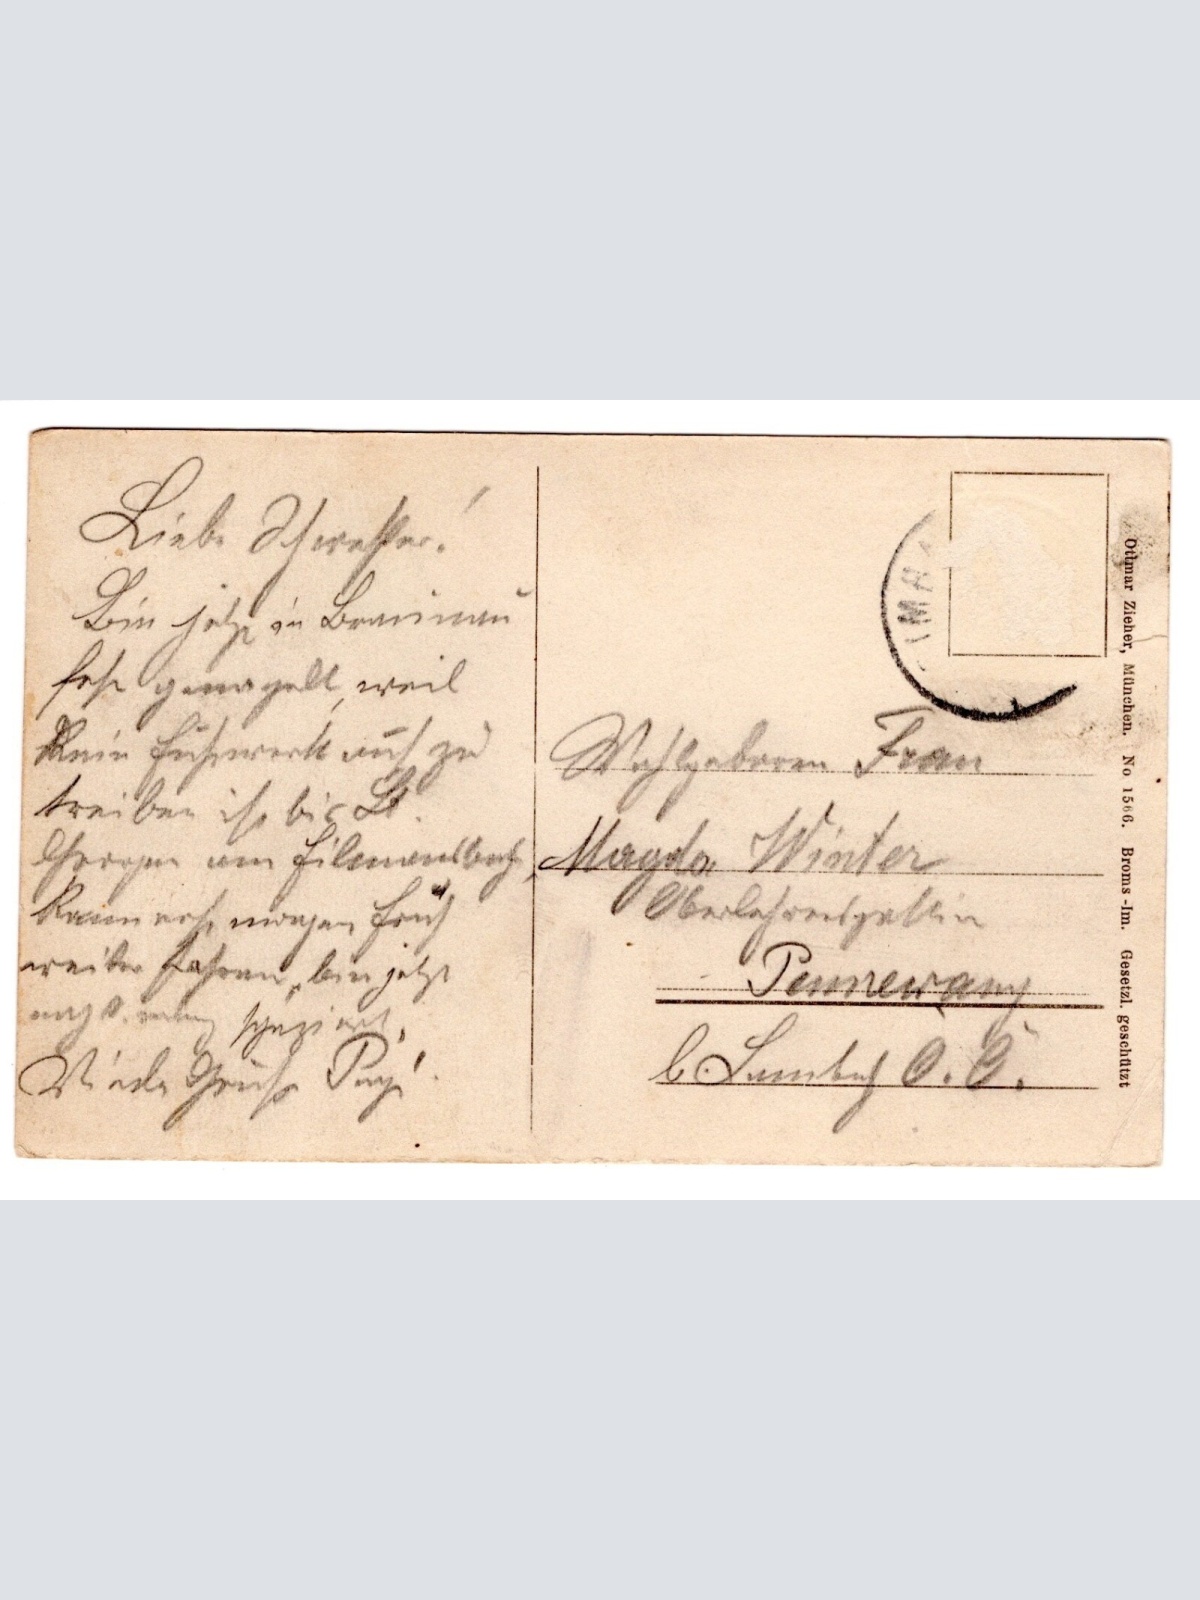 Liebe Schwester!
Bin jetzt in Braunau
fest genagelt, weil
kein Fuhrwerk auf zu
treiben ist bis St.
Georgen am Filmannsbach,
kann erst morgen früh
weiter fahren, bin jetzt
spaziert,
Viele Grüße
Wohlgeboren Frau
Magda Winter
Oberlehrersgattin
Pennewang
b. Lambach O. Ö.
Ottmar Zieher, München. No 1566. Broms-Im. Gesetzl. geschützt